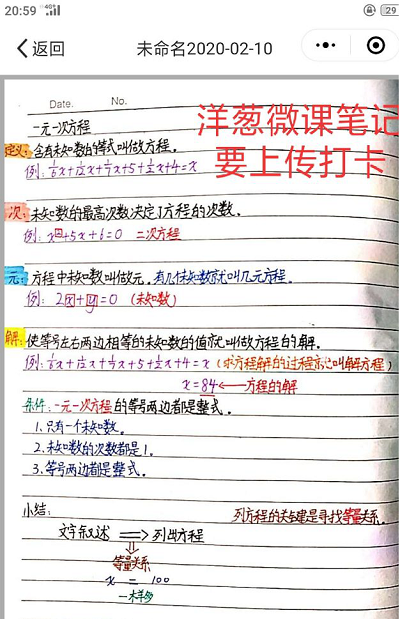 20:59
29
返回
未命名2020-02-10
Date.
No.
洋葱微课笔记
要上传打卡
一元一次方程
定义:含有未知数的等式叫做方程。
例: 1/6x+1/12x+1/7x+5+1/2x+4=x
次:未知数的最高次数决定了方程的次数。
例: x²+5x+6=0 二次方程
元:方程中未知数叫做元,有几个未知数就叫几元方程。
例: 2x+y=0 (未知数)
解:使等号左右两边相等的未知数的值就叫做方程的解。
例: 1/6x+1/12x+1/7x+5+1/2x+4=x (求方程解的过程就叫解方程)
x=84←方程的解
条件:一元一次方程的等号两边都是整式。
1.只有一个未知数。
2.未知数的次数都是1.
3.等号两边都是整式。
小结: 列方程的关键是寻找等量关系。
文字叙述 ⟹ 列出方程
⇓
等量关系
x = 100
一样多